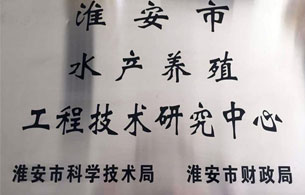 淮安市
水产养殖
工程技术研究中心
淮安市科学技术局 淮安市财政局